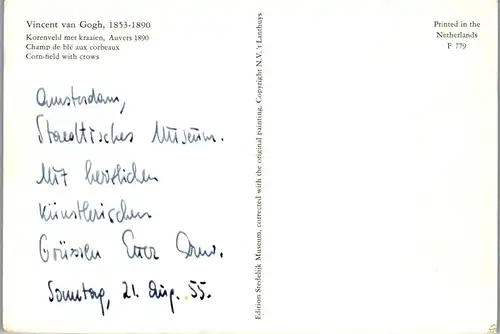 Vincent van Gogh, 1853-1890
Korenveld met kraaien, Auvers 1890
Champ de blé aux corbeaux
Corn-field with crows
Amsterdam,
Staedtisches Museum.
Mit herzlichen
künstlerischen
Grüssen Euer
Sonntag, 21. Aug. 55.
Edition Stedelijk Museum, corrected with the original painting. Copyright N.V. 't Lanthuys
Printed in the
Netherlands
F 779